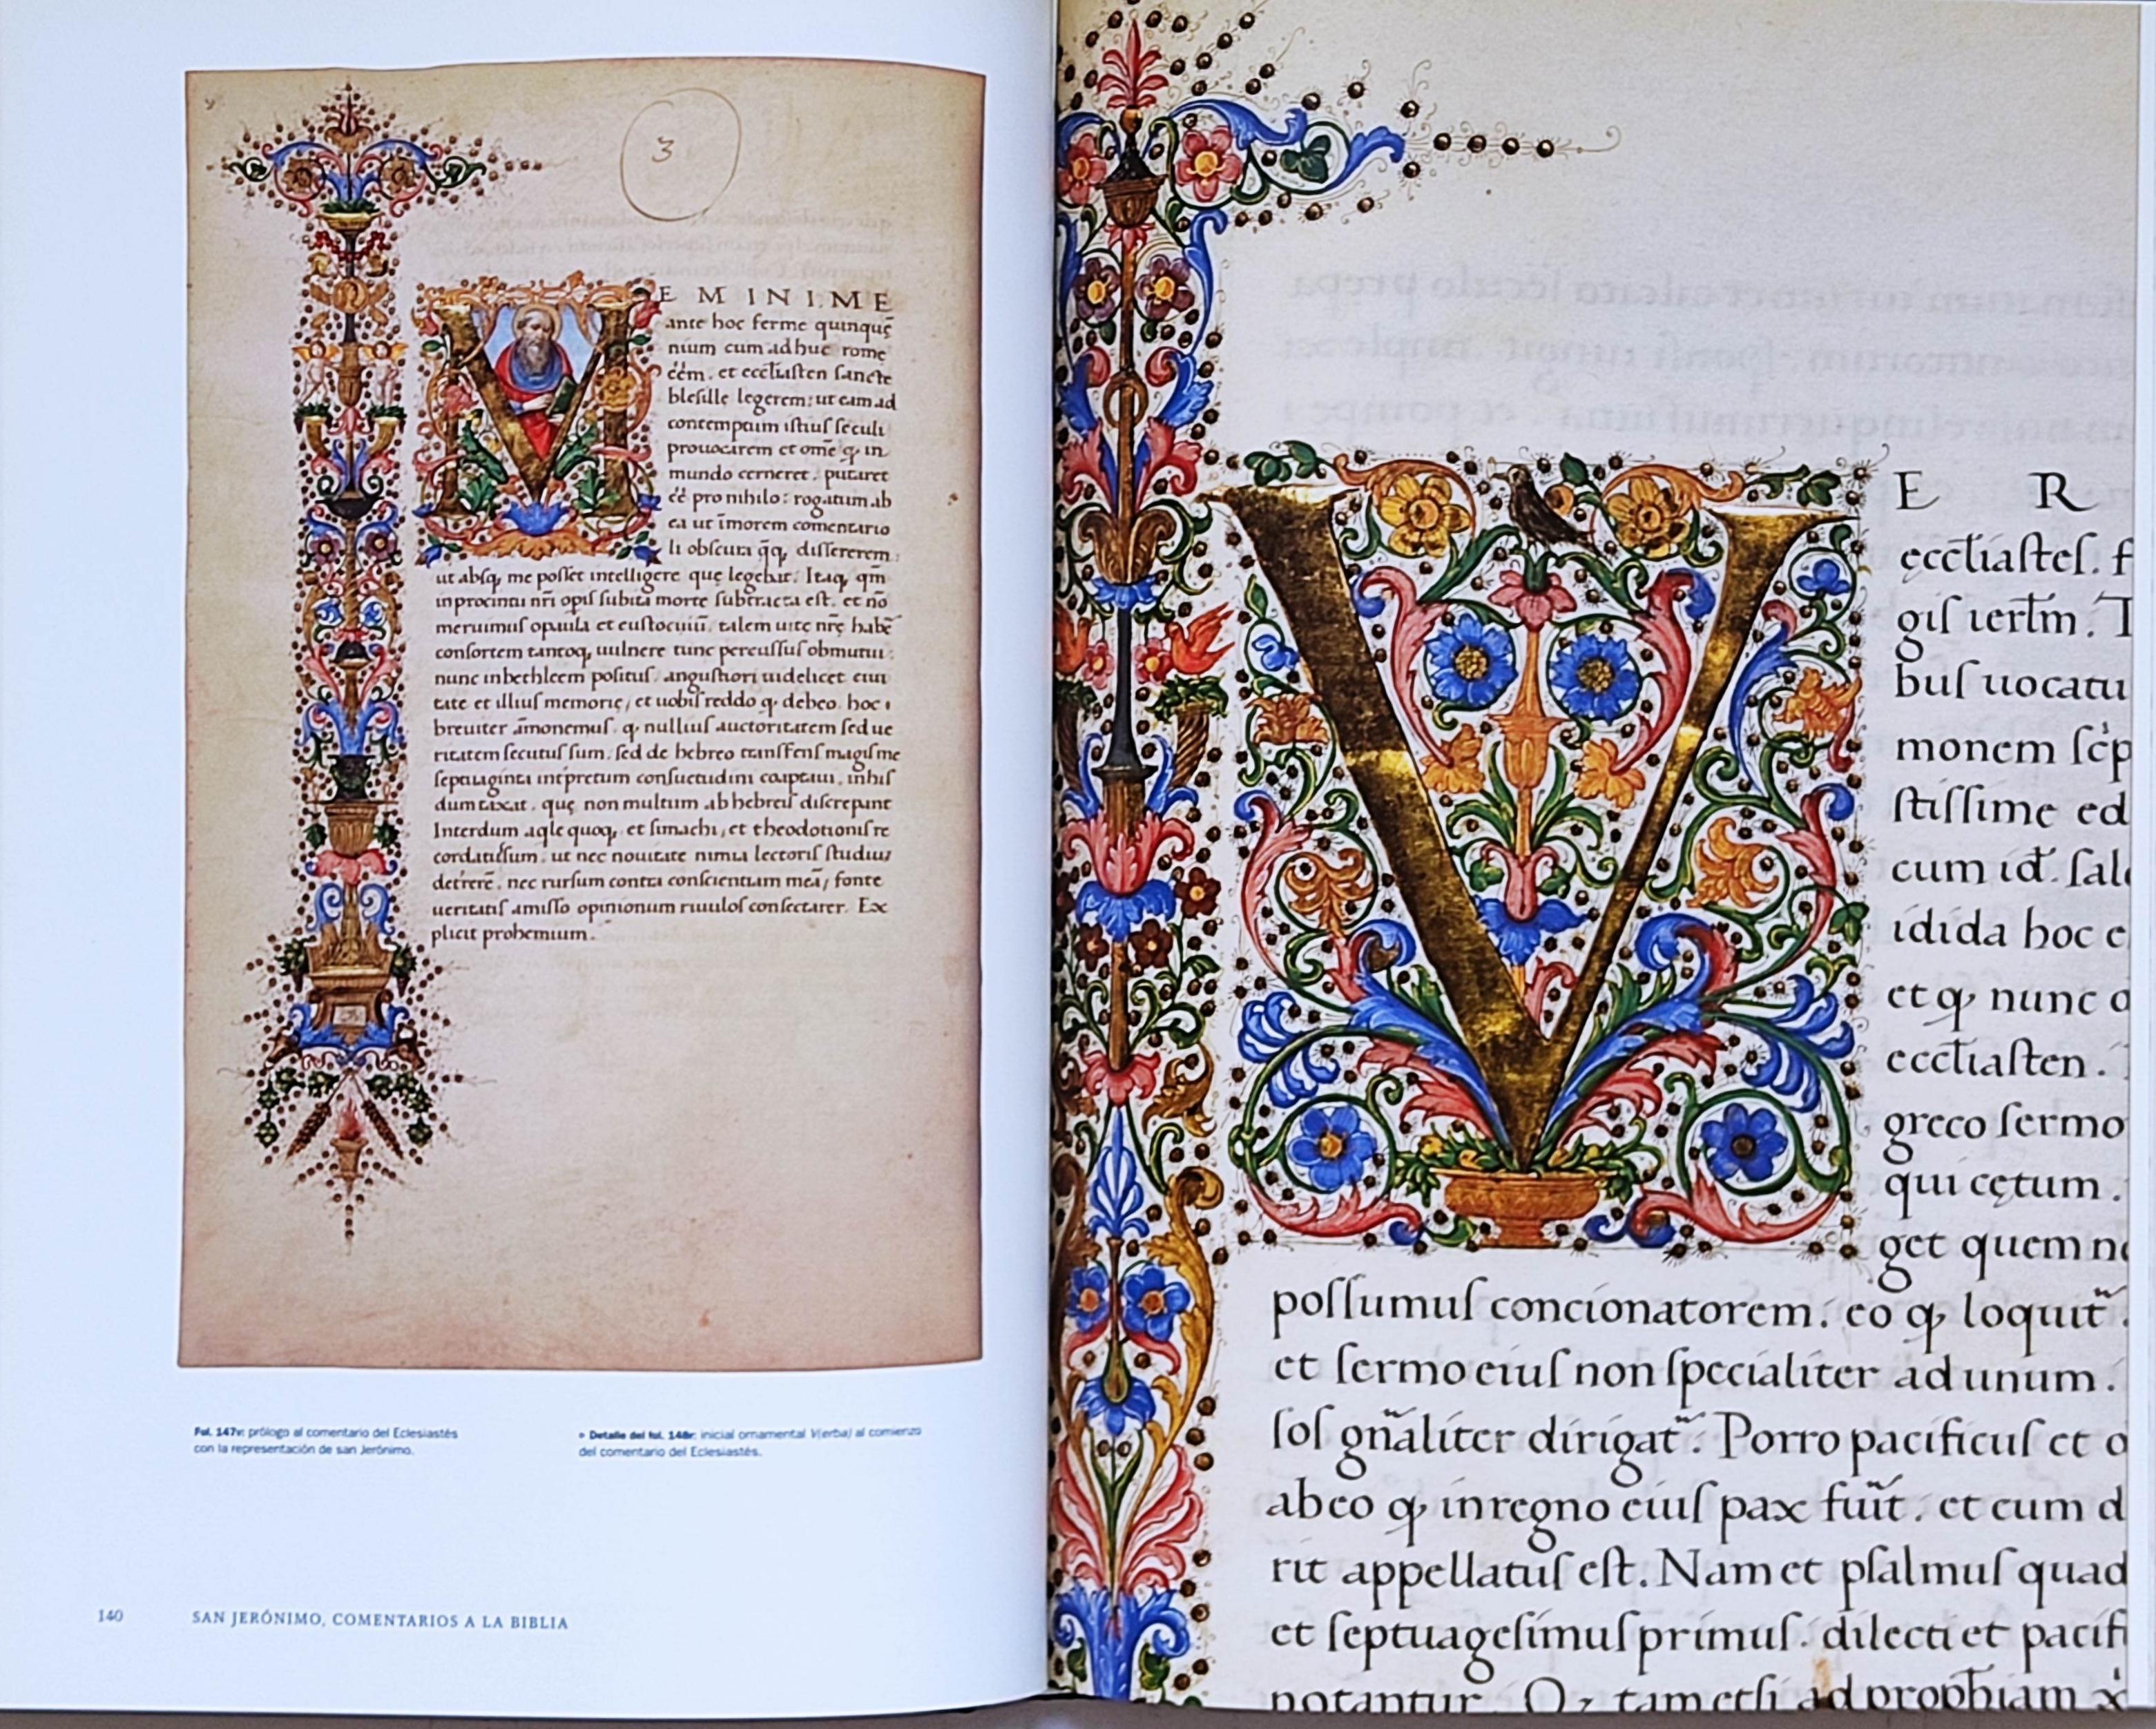 3
M E M I N I . M E
ante hoc ferme quinquę̄
nium cum adhuc romę
éēm. et eccl̄iasten sancte
blesille legerem: ut eam ad
contemptum istius seculi
prouocarem et om̄e q̨ in
mundo cerneret. putaret
éē pro nihilo: rogatum ab
ea ut īmorem comentario
li obscura q̄q, dissererem:
ut absq, me posset intelligere quę legebat. Itaq, qm̄
in procintu nr̄i opis subita morte subtracta est. et nō
meruimus opaula et eustociuū. talem uite nr̄ę habē
consortem tantoq, uulnere tunc percussus obmutui:
nunc in bethleem positus. angustiori uidelicet ciui
tate et illius memorię, et uobis reddo q̨ debeo. hoc
breuiter āmonemus. q̨ nullius auctoritatem sed ue
ritatem secutus sum. sed de hebreo transferens magis me
septuaginta inēpretum consuetudini coaptaui. in his
dumtaxat. quę non multum ab hebreis discrepant
Interdum aqle quoq, et simachi, et theodotionis re
cordatus sum. ut nec nouitate nimia lectoris studiuȝ
deterrerē. nec rursum contra conscientiam meā, fonte
ueritatis amisso opinionum riuulos consectarer. Ex
plicit prohemium.
Fol. 147v: prólogo al comentario del Eclesiastés
con la representación de san Jerónimo.
» Detalle del fol. 148r: inicial ornamental V(erba) al comienzo
del comentario del Eclesiastés.
140 SAN JERÓNIMO, COMENTARIOS A LA BIBLIA
V E R
ęccl̄iastes. f
gis ierl̄m. T
bus uocatu
monem sc̄p
stissime ed
cum id̄. sal
idida hoc e
et q̨ nunc
eccl̄iasten.
greco sermo
qui cętum.
get quem n
possumus concionatorem. eo q̨ loquit̃.
et sermo eius non specialiter ad unum.
sos gn̄aliter dirigat̃. Porro pacificus et
ab eo q̨ in regno eius pax fuit̃. et cum d
rit appellatus est. Nam et psalmus quad
et septuagesimus primus. dilecti et pacifi
notantur. Qȝ tametsi ad proph̄iam x